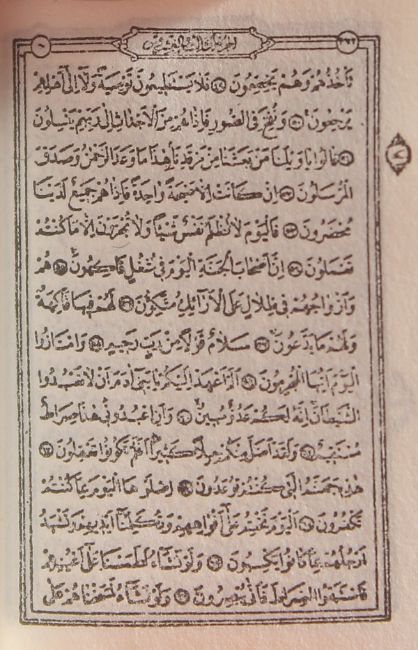 تَأْخُذُهُمْ وَهُمْ يَخِصِّمُونَ فَلَا يَسْتَطِيعُونَ تَوْصِيَةً وَلَا إِلَى أَهْلِهِمْ
يَرْجِعُونَ وَنُفِخَ فِي الصُّورِ فَإِذَا هُمْ مِنَ الْأَجْدَاثِ إِلَى رَبِّهِمْ يَنْسِلُونَ
قَالُوا يَا وَيْلَنَا مَنْ بَعَثَنَا مِنْ مَرْقَدِنَا هَذَا مَا وَعَدَ الرَّحْمَنُ وَصَدَقَ
الْمُرْسَلُونَ إِنْ كَانَتْ إِلَّا صَيْحَةً وَاحِدَةً فَإِذَا هُمْ جَمِيعٌ لَدَيْنَا
مُحْضَرُونَ فَالْيَوْمَ لَا تُظْلَمُ نَفْسٌ شَيْئًا وَلَا تُجْزَوْنَ إِلَّا مَا كُنْتُمْ
تَعْمَلُونَ إِنَّ أَصْحَابَ الْجَنَّةِ الْيَوْمَ فِي شُغُلٍ فَاكِهُونَ هُمْ
وَأَزْوَاجُهُمْ فِي ظِلَالٍ عَلَى الْأَرَائِكِ مُتَّكِؤُنَ لَهُمْ فِيهَا فَاكِهَةٌ
وَلَهُمْ مَا يَدَّعُونَ سَلَامٌ قَوْلًا مِنْ رَبٍّ رَحِيمٍ وَامْتَازُوا
الْيَوْمَ أَيُّهَا الْمُجْرِمُونَ أَلَمْ أَعْهَدْ إِلَيْكُمْ يَا بَنِي آدَمَ أَنْ لَا تَعْبُدُوا
الشَّيْطَانَ إِنَّهُ لَكُمْ عَدُوٌّ مُبِينٌ وَأَنِ اعْبُدُونِي هَذَا صِرَاطٌ
مُسْتَقِيمٌ وَلَقَدْ أَضَلَّ مِنْكُمْ جِبِلًّا كَثِيرًا أَفَلَمْ تَكُونُوا تَعْقِلُونَ
هَذِهِ جَهَنَّمُ الَّتِي كُنْتُمْ تُوعَدُونَ اصْلَوْهَا الْيَوْمَ بِمَا كُنْتُمْ
تَكْفُرُونَ الْيَوْمَ نَخْتِمُ عَلَى أَفْوَاهِهِمْ وَتُكَلِّمُنَا أَيْدِيهِمْ وَتَشْهَدُ
أَرْجُلُهُمْ بِمَا كَانُوا يَكْسِبُونَ وَلَوْ نَشَاءُ لَطَمَسْنَا عَلَى أَعْيُنِهِمْ
فَاسْتَبَقُوا الصِّرَاطَ فَأَنَّى يُبْصِرُونَ وَلَوْ نَشَاءُ لَمَسَخْنَاهُمْ عَلَى